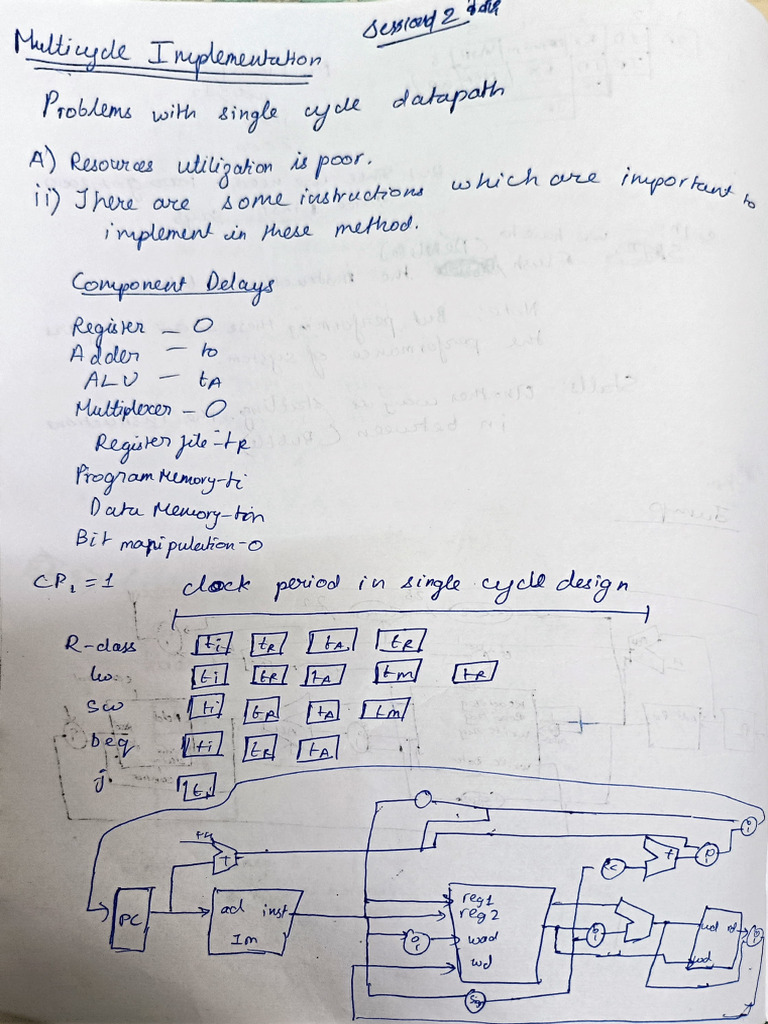 Session 2
Multicycle Implementation
Problems with single cycle datapath
A) Resources utilization is poor.
ii) There are some instructions which are important to
implement in these method.
Component Delays
Register – 0
Adder – to
ALU – tA
Multiplexer – 0
Register file – tR
Program Memory – ti
Data Memory – tm
Bit manipulation – 0
CPI = 1 clock period in single cycle design
R-class ti tR tA tR
lw ti tR tA tm tR
sw ti tR tA tm
beq ti tR tA
j. ti
+4
+
+
PC
ad inst
Im
reg1
reg2
wad
wd
ad rd
wd